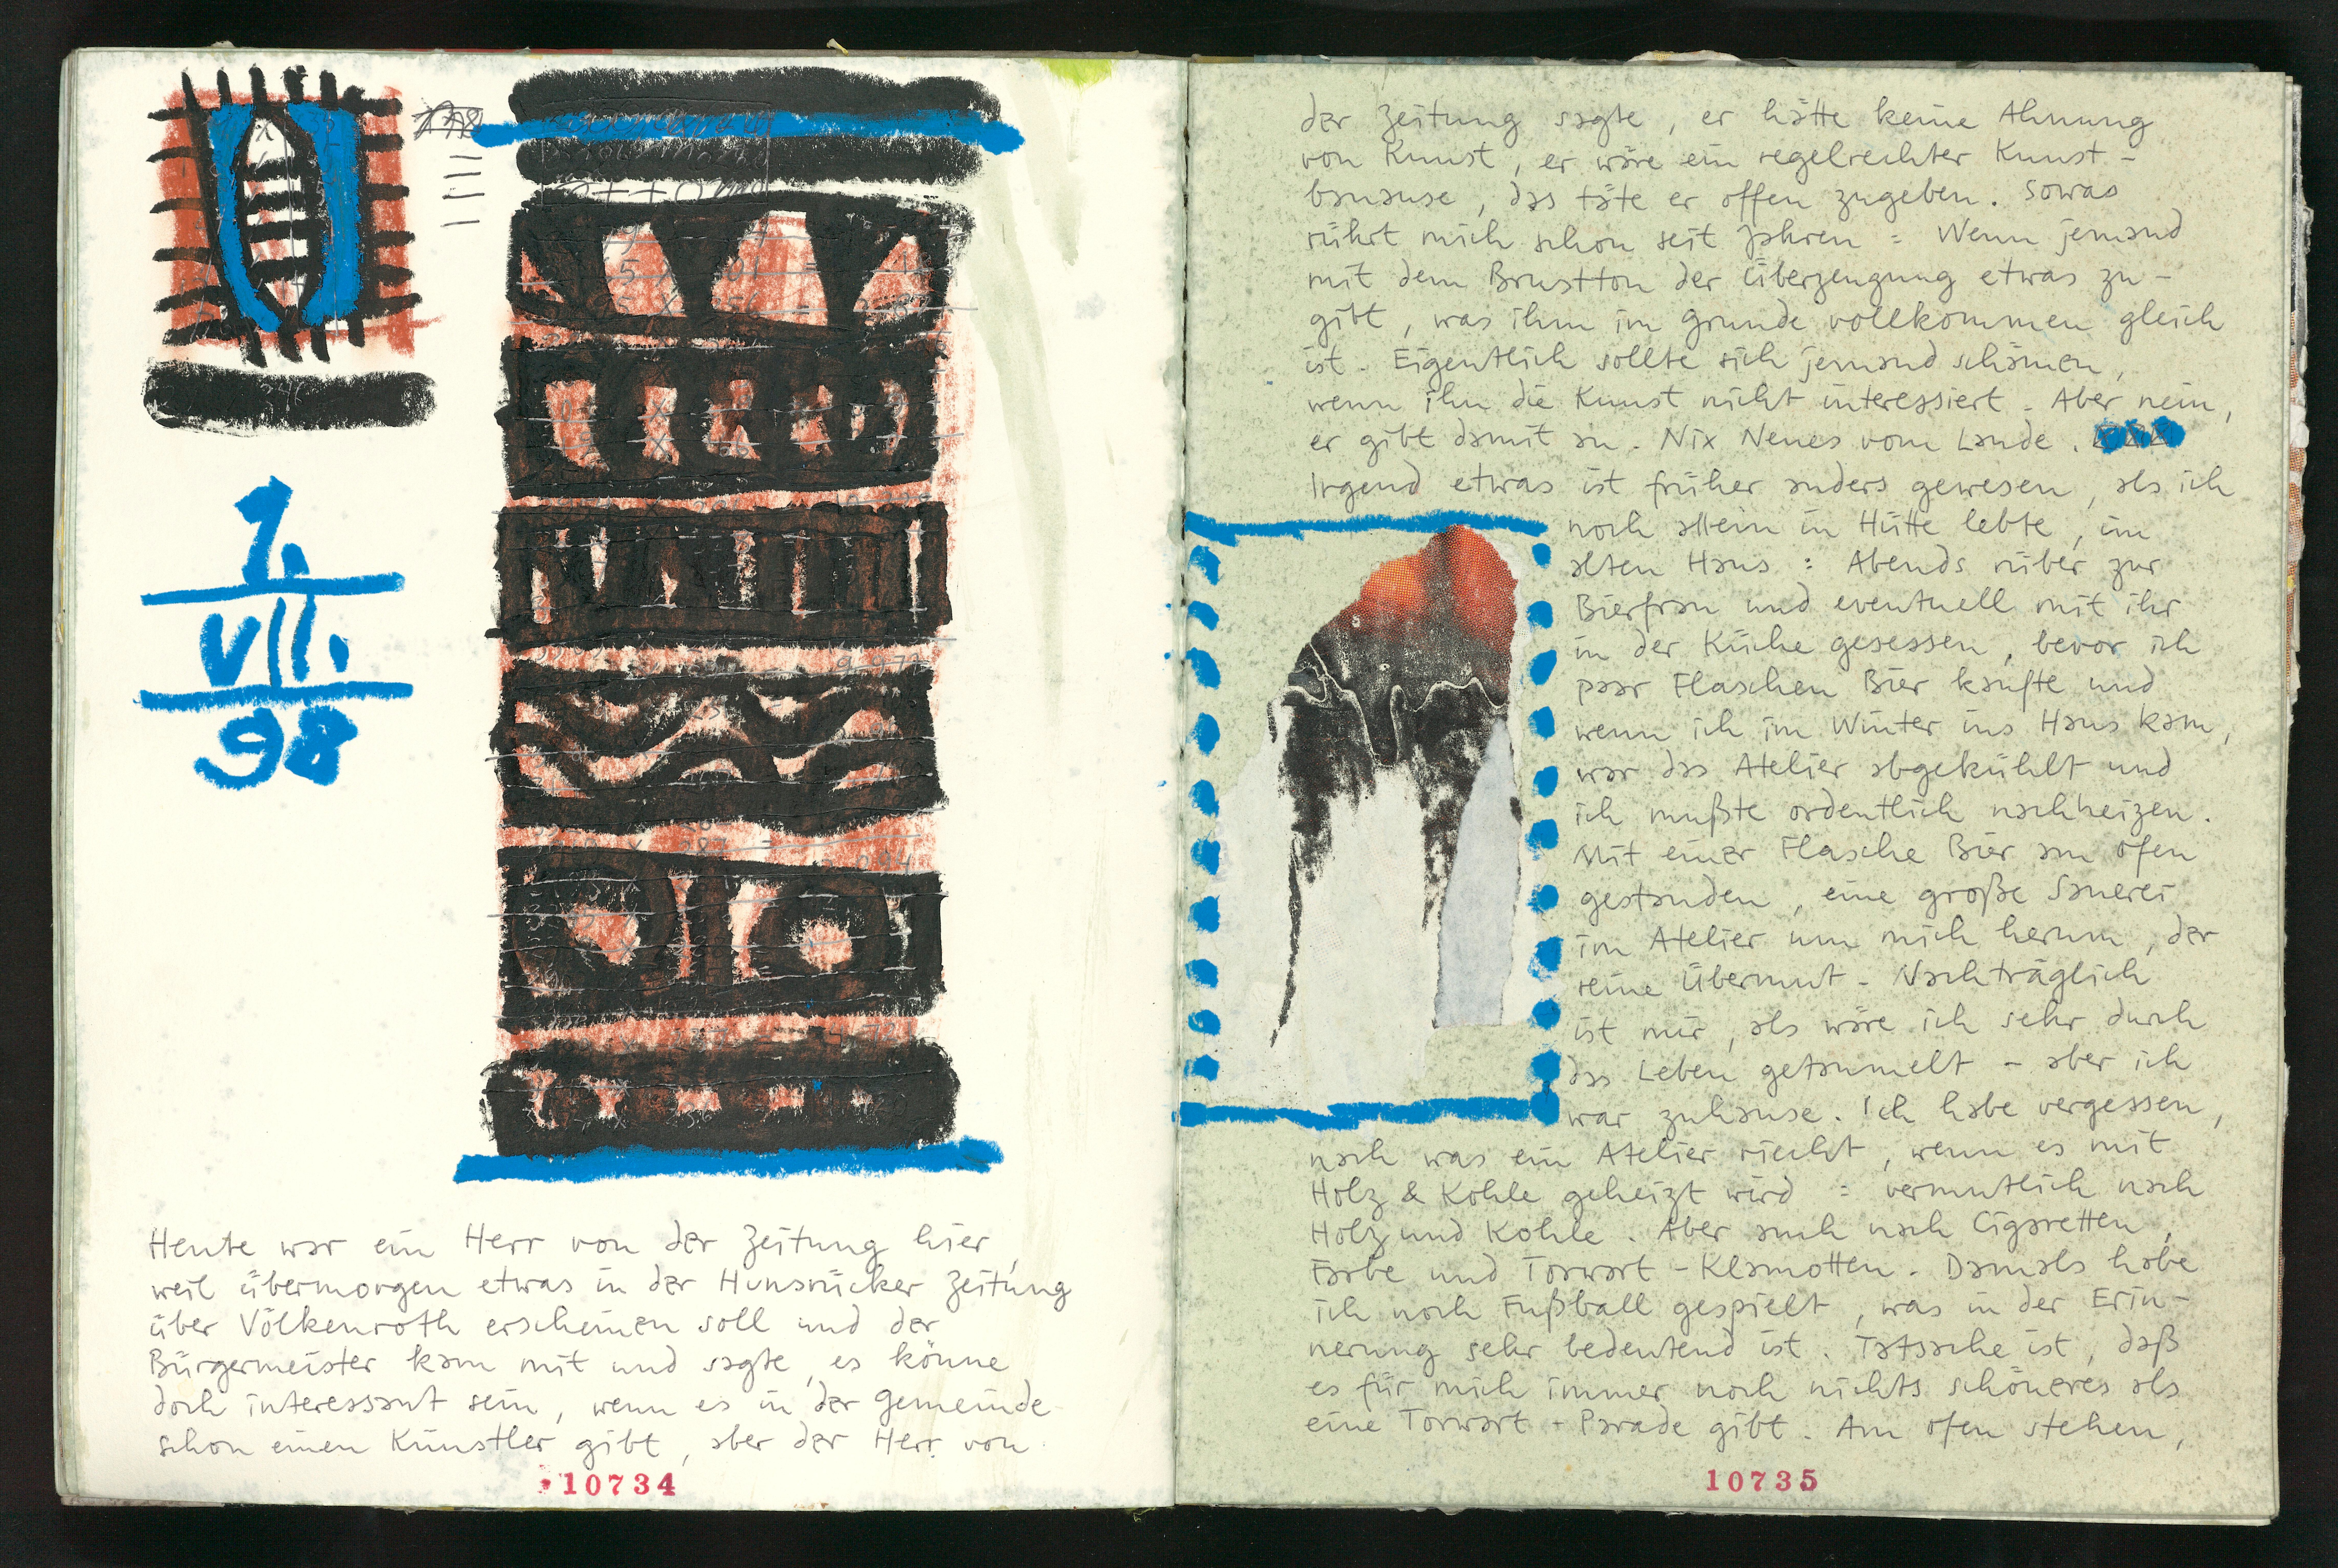 1.
VII.
98
Heute war ein Herr von der Zeitung hier,
weil übermorgen etwas in der Hunsrücker Zeitung
über Völkenroth erscheinen soll und der
Bürgermeister kam mit und sagte, es könne
doch interessant sein, wenn es in der Gemeinde
schon einen Künstler gibt, aber der Herr von
10734
der Zeitung sagte, er hätte keine Ahnung
von Kunst, er wäre ein regelrechter Kunst-
banause, das täte er offen zugeben. Sowas
rührt mich schon seit Jahren: Wenn jemand
mit dem Brustton der Überzeugung etwas zu-
gibt, was ihm im Grunde vollkommen gleich
ist. Eigentlich sollte sich jemand schämen,
wenn ihn die Kunst nicht interessiert. Aber nein,
er gibt damit an. Nix Neues vom Lande.
Irgend etwas ist früher anders gewesen, als ich
noch allein in Hütte lebte, im
alten Haus: Abends rüber zur
Bierfrau und eventuell mit ihr
in der Küche gesessen, bevor ich
paar Flaschen Bier kaufte und
wenn ich im Winter ins Haus kam,
war das Atelier abgekühlt und
ich mußte ordentlich nachheizen.
Mit einer Flasche Bier am Ofen
gestanden, eine große Sauerei
im Atelier um mich herum, der
reine Übermut. Nachträglich
ist mir, als wäre ich sehr durch
das Leben getaumelt – aber ich
war zuhause. Ich habe vergessen,
nach was ein Atelier riecht, wenn es mit
Holz & Kohle geheizt wird: vermutlich nach
Holz und Kohle. Aber auch nach Cigaretten,
Farbe und Torwart-Klamotten. Damals habe
ich noch Fußball gespielt, was in der Erin-
nerung sehr bedeutend ist. Tatsache ist, daß
es für mich immer noch nichts schöneres als
eine Torwart-Parade gibt. Am Ofen stehen,
10735